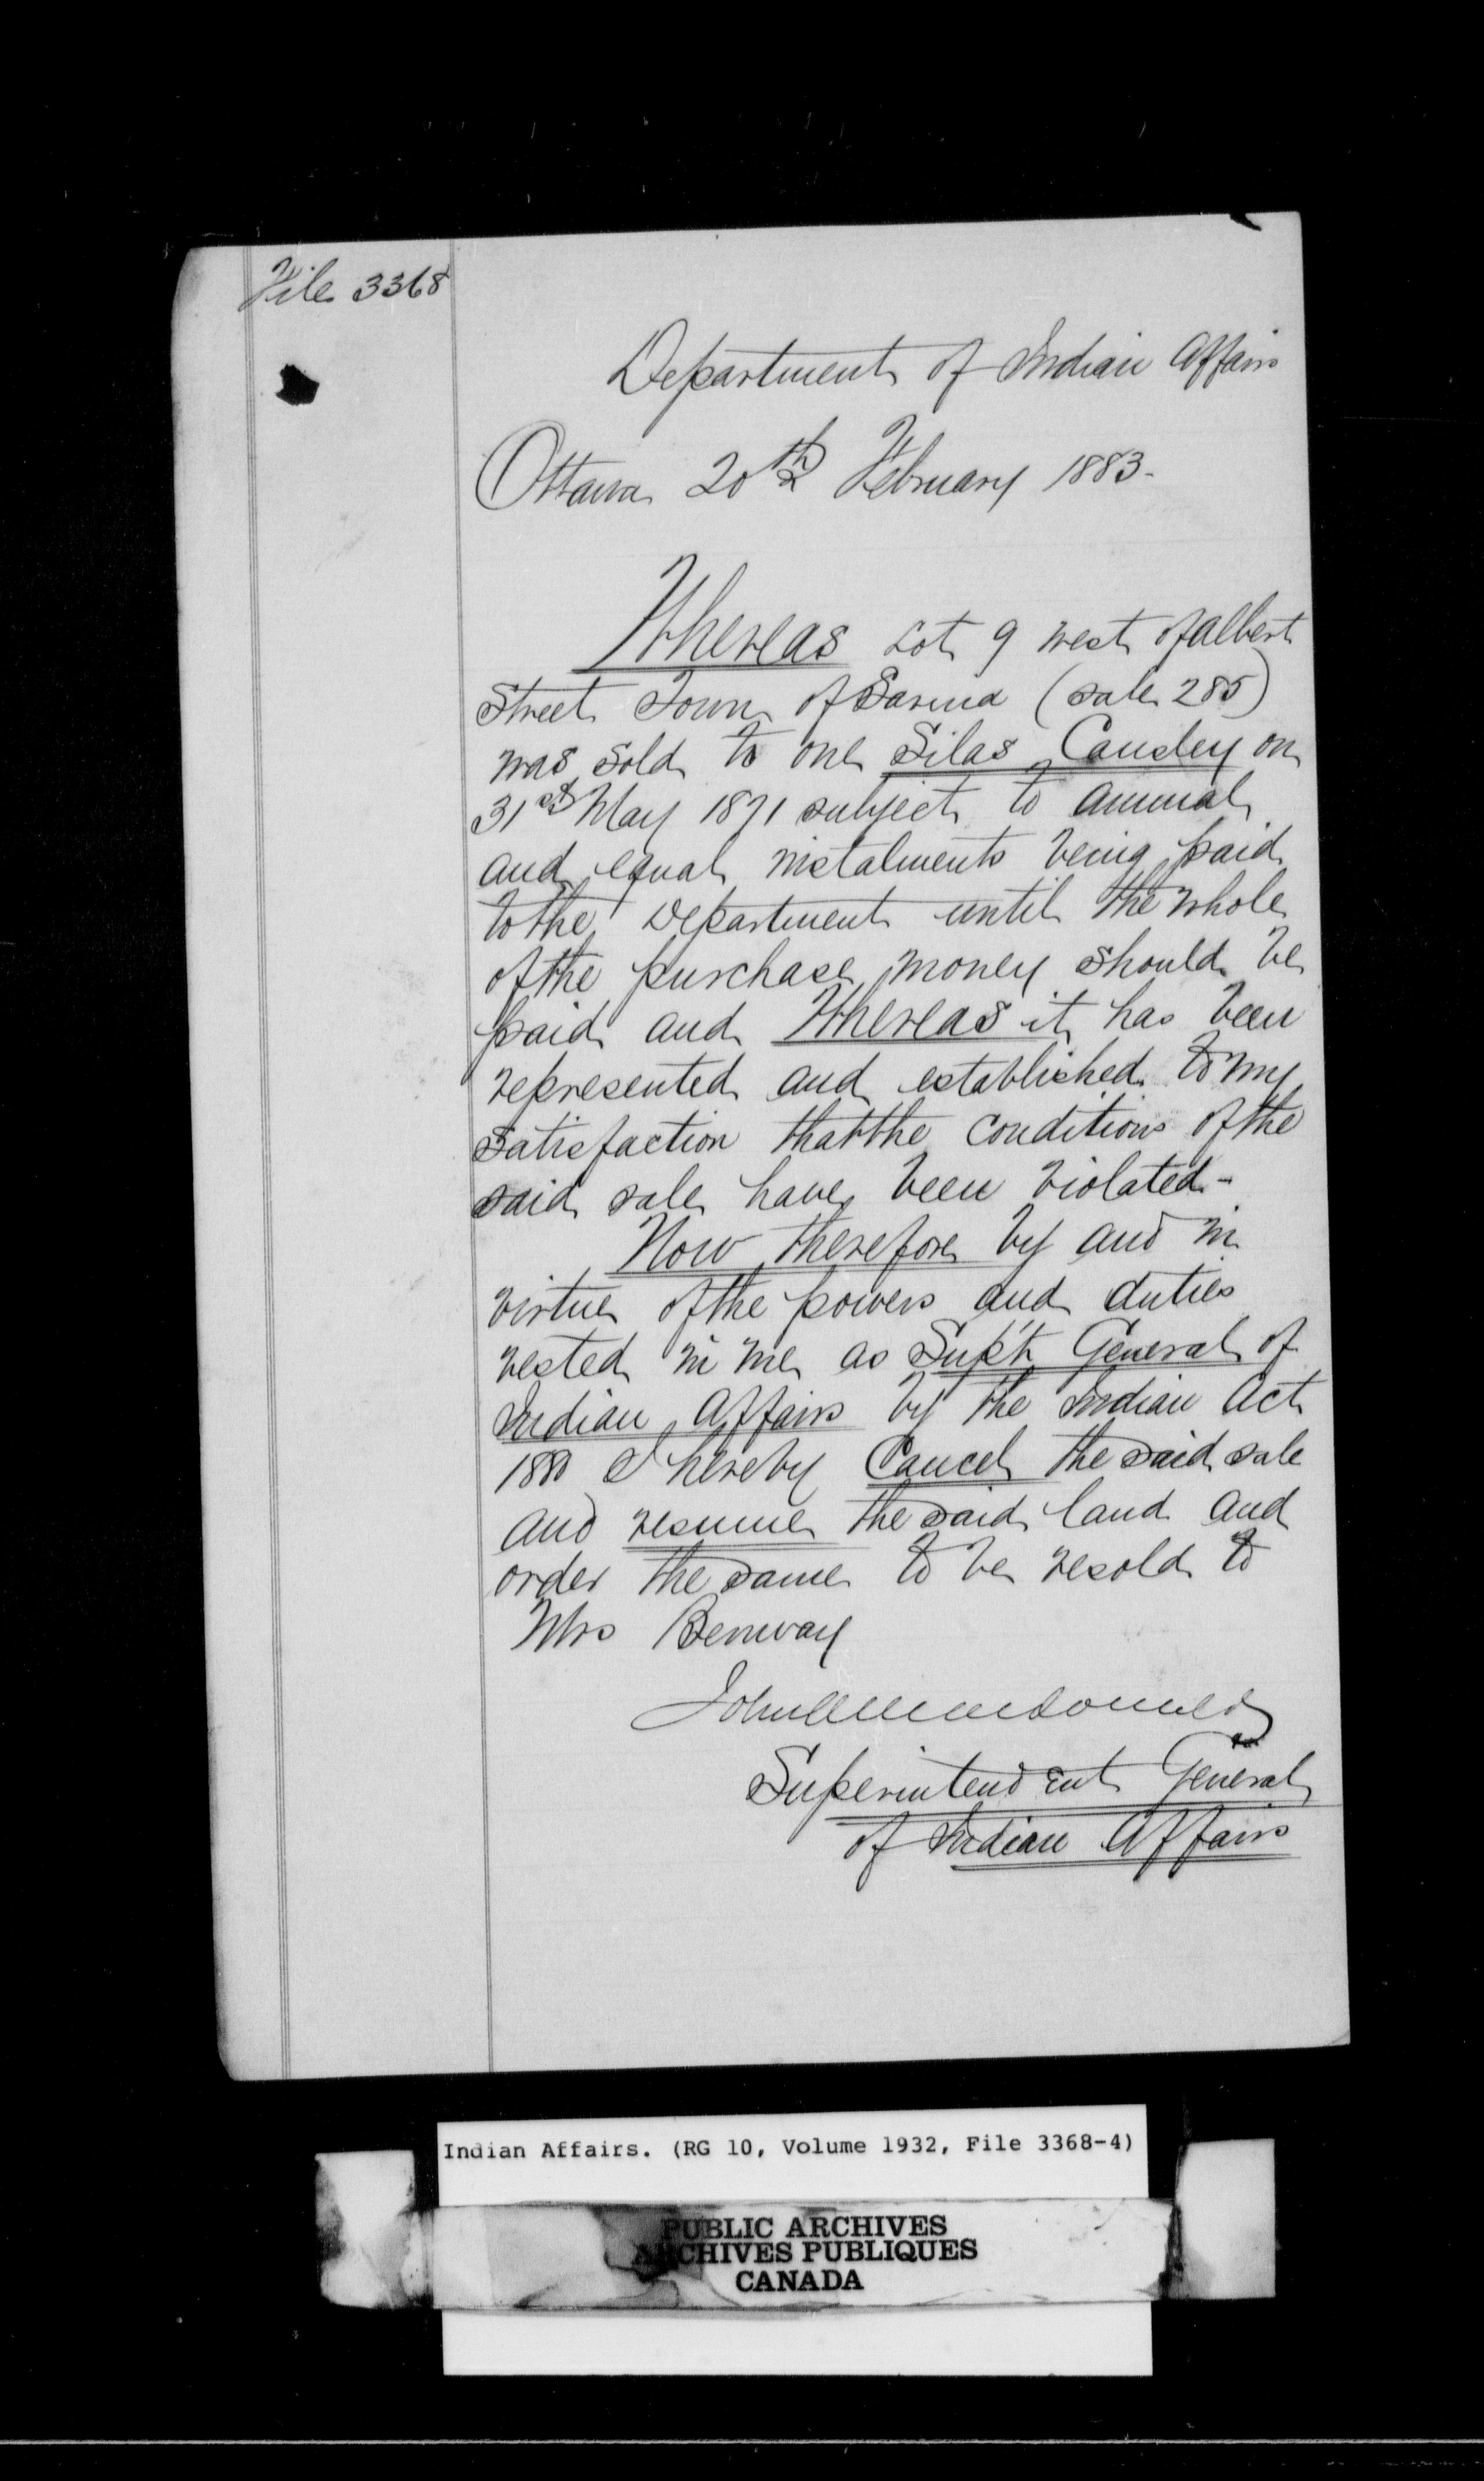 File 3368
Department of Indian Affairs
Ottawa 20th February 1883-
Whereas Lot 9 west of Albert
Street Town of Sarnia (sale 285)
was sold to one Silas Causley on
31st May 1871 subject to annual
and equal instalments being paid
to the Department until the whole
of the purchase money should be
paid and Whereas it has been
represented and established to my
satisfaction that the conditions of the
said sale have been violated-
Now therefore by and in
virtue of the powers and duties
vested in me as Sup't General of
Indian Affairs by the Indian Act
1880 I hereby Cancel the said sale
and resume the said land and
order the same to be resold to
Mrs Benway
John A Macdonald
Superintendent General
of Indian Affairs
Indian Affairs. (RG 10, Volume 1932, File 3368-4)
PUBLIC ARCHIVES
ARCHIVES PUBLIQUES
CANADA